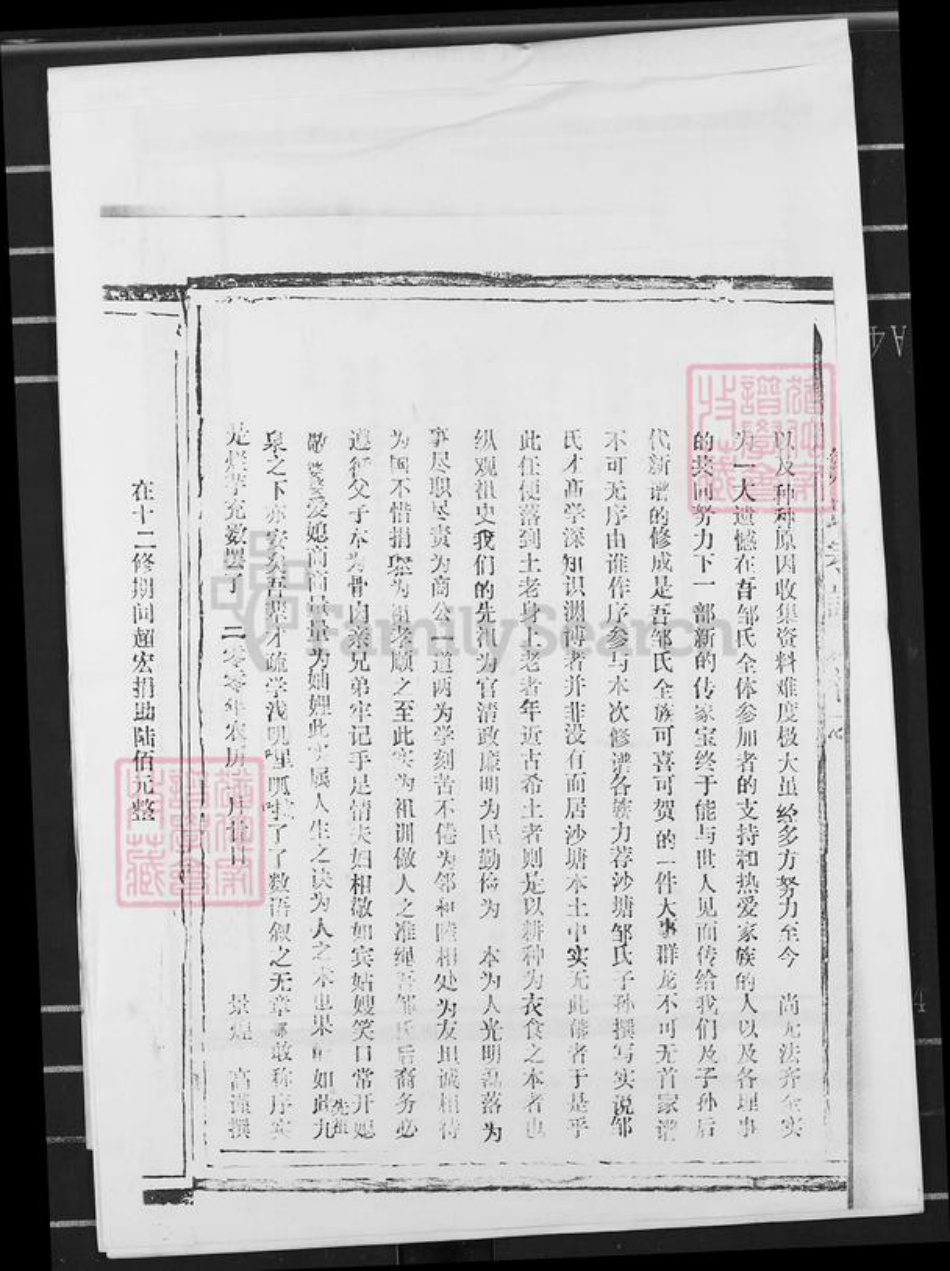 以及种种原因收集资料难度极大虽经多方努力至今 尚无法齐全实
为一大遗憾在吾邹氏全体参加者的支持和热爱家族的人以及各理事
的共同努力下一部新的传家宝终于能与世人见面传给我们及子孙后
代新谱的修成是吾邹氏全族可喜可贺的一件大事群龙不可无首家谱
不可无序由谁作序参与本次修谱各族力荐沙塘邹氏子孙撰写实说邹
氏才高学深知识渊博者并非没有而居沙塘本土中实无此能者于是乎
此任便落到土老身上老者年近古希土者则是以耕种为衣食之本者也
纵观祖史我们的先祖为官清政廉明为民勤俭为 本为人光明磊落为
事尽职尽责为商公一道两为学刻苦不倦为邻和睦相处为友坦诚相待
为国不惜捐躯为祖孝顺之至此实为祖训做人之准绳吾邹氏后裔务必
遵行父子本为骨肉亲兄弟牢记手足情夫妇相敬如宾姑嫂笑口常开媳
敬婆婆爱媳商商量量为妯娌此实属人生之诀为人之本患果能如此先祖九
泉之下亦安矣吾辈才疏学浅叽哩呱啦了了数语叙之无章哪敢称序实
是烂芋充数罢了 二零零零年农历 月廿日 景煌 高谨撰
在十二修期间超宏捐助陆佰元整
FamilySearch